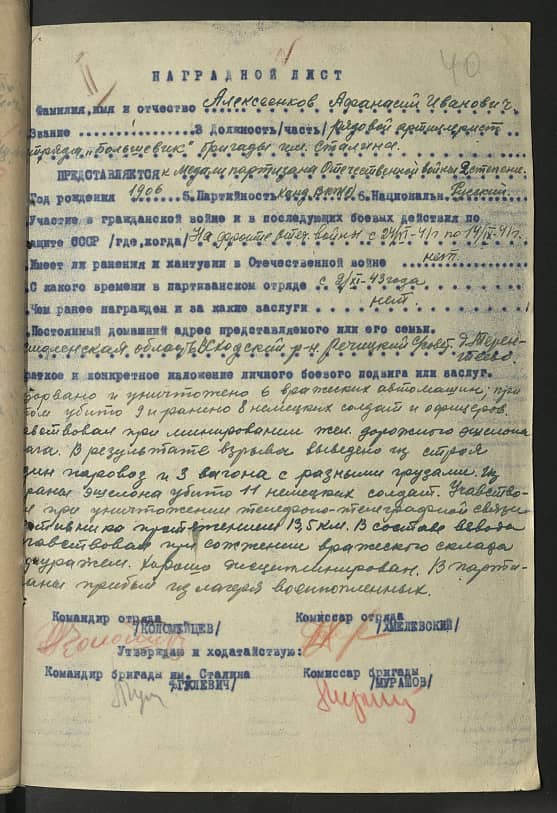 40
НАГРАДНОЙ ЛИСТ
Фамилия, имя и отчество Алексеенков Афанасий Иванович.
.Звание 3 Должность/часть/рядовой артиллерист
отряда „Большевик" бригады им. Сталина.
ПРЕДСТАВЛЯЕТСЯ к Медали партизана Отечественной войны 2 степени.
Год рождения 1906 5.Партийность Канд ВКП(б) 6.Национальн. Русский.
.Участие в гражданской войне и в последующих боевых действия по
защите СССР /где,когда/ На фронте отеч. войны с 24/VI-41г по
.Имеет ли ранения и кантузии в Отечественной войне нет.
.С какого времени в партизанском отряде с 2/XI-43 года
.Чем ранее награжден и за какие заслуги нет
.Постоянный домашний адрес представляемого или его семьи.
Смоленская область, Всходский р-н. Речицкий с/совет. д. Терен-
тьево.
раткое и конкретное изложение личного боевого подвига или заслуг.
дорвано и уничтожено 6 вражеских автомашин, при
том убито 9 и ранено 8 немецких солдат и офицеров.
авствовал при минировании жел. дорожного эшелона
ага. В результате взрыва выведено из строя
дин паровоз и 3 вагона с разными грузами. Из
раны эшелона убито 11 немецких солдат. Учавство-
л при уничтожении телефоно-телеграфной связи
отивника протяжением 13,5 км. В составе взвода
чавствовал при сожжении вражеского склада
фуражем. Хорошо дисциплинирован. В парти-
заны прибыл из лагеря военнопленных.
Командир отряда Комиссар отряда
/КОЛОМЕЙЦЕВ/ /ХМЕЛЕВСКИЙ/
Утверждаю и ходатайствую:
Командир бригады им. Сталина Комиссар бригады
/ГУЛЕВИЧ/ /МУРАШОВ/